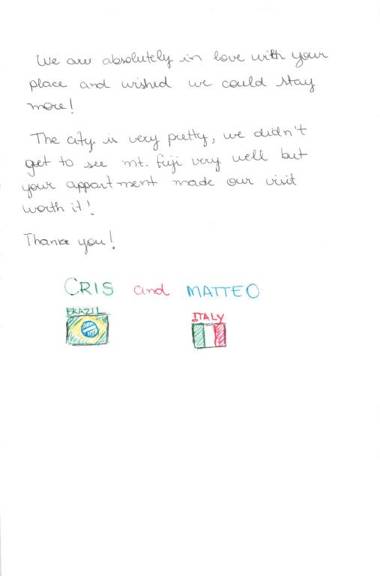 We are absolutely in love with your
place and wished we could stay
more!
The city is very pretty, we didn't
get to see mt. fuji very well but
your appartment made our visit
worth it!
Thank you!
CRIS and MATTEO
BRAZIL ITALY